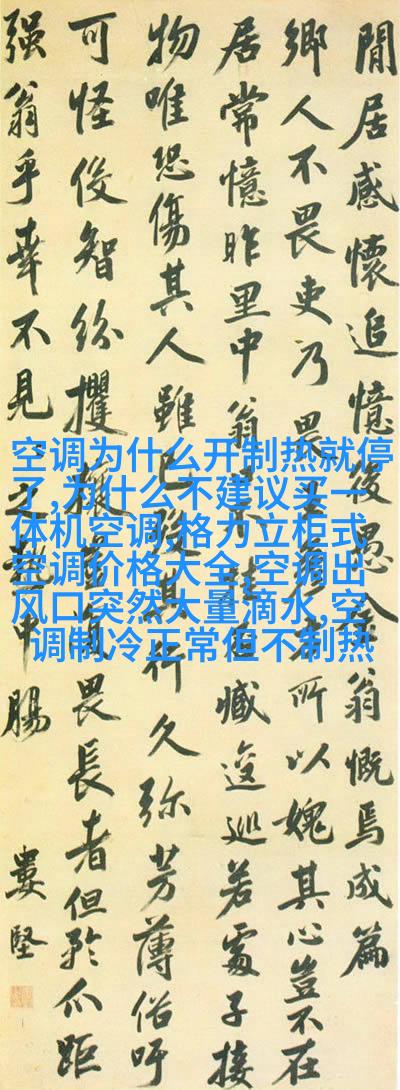 閒居感懷追憶後愚翁慨焉成篇
鄉人不畏吏乃畏里所以媿其心豈不在
居常憶昨里中翁臧逡巡若處子接
物唯恐傷其人雖已歿其行久弥芳薄俗吁
可怪俊智紛攫畏長者但矜爪距
強翁乎幸不見之中腸
婁堅
空调为什么开制热就停
了,为什么不建议买一
体机空调,格力立柜式
空调价格大全,空调出
风口突然大量滴水,空
调制冷正常但不制热